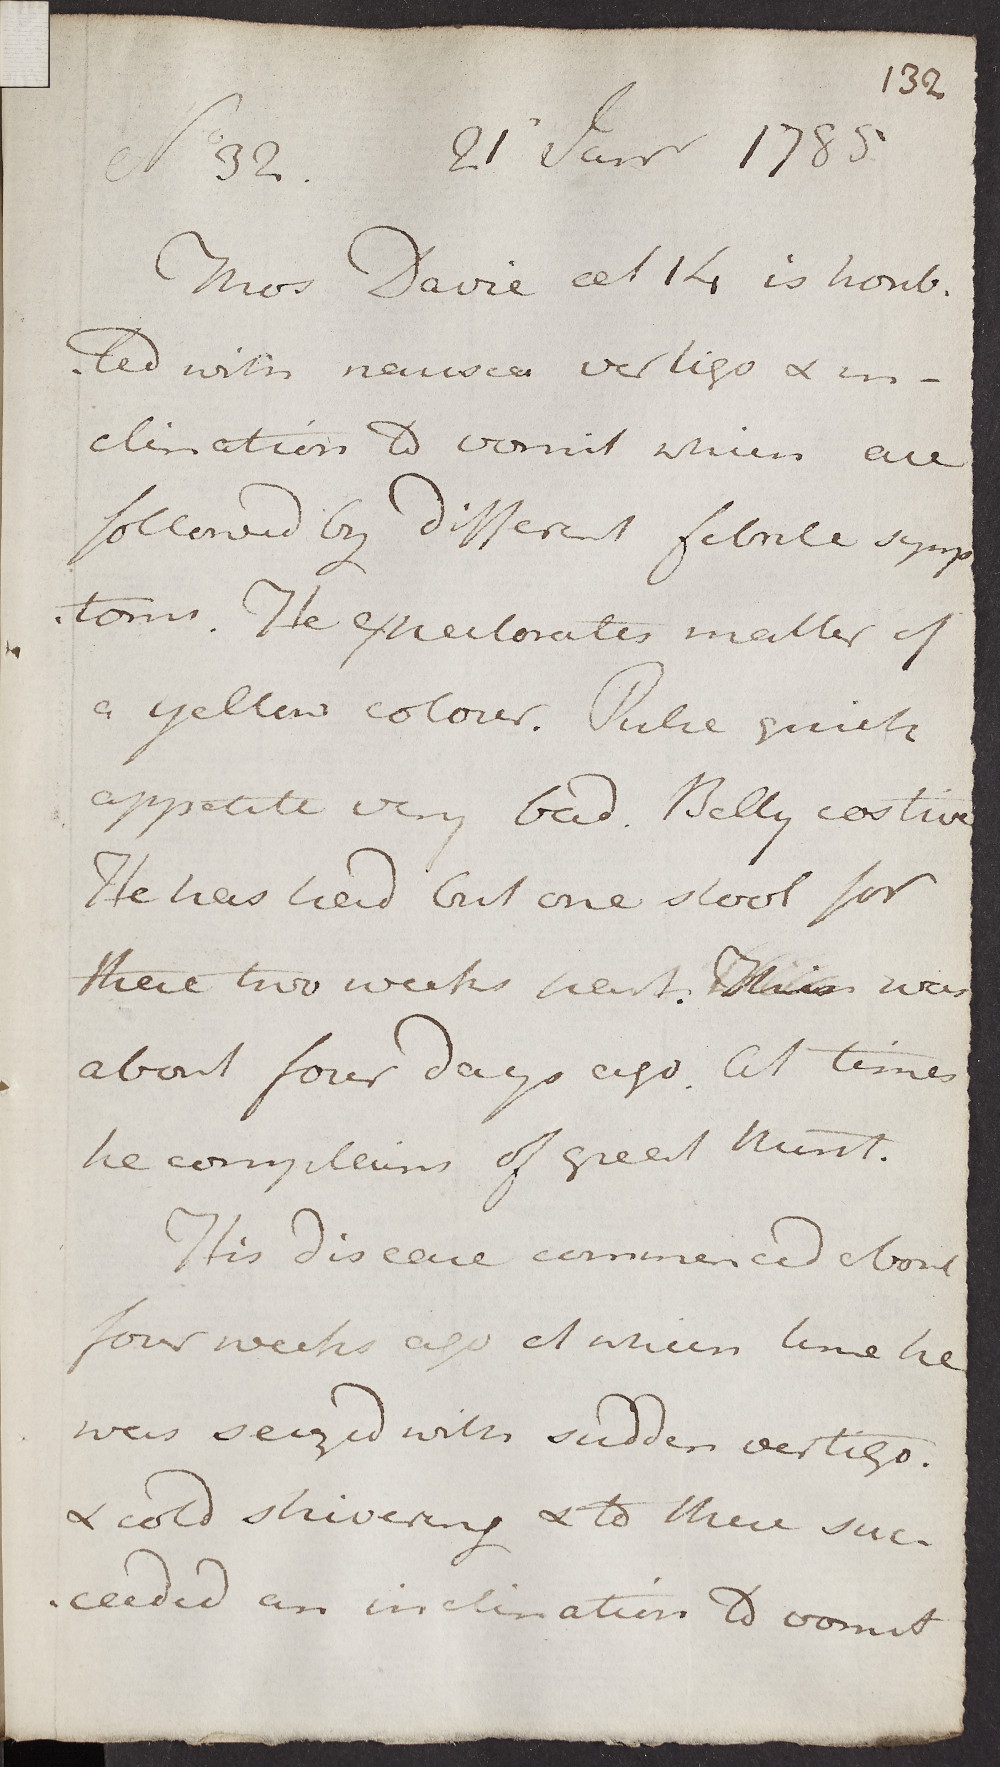 132
No 32. 21st Janr 1785
Thos Davie aet 14 is troub-
-led with nausea vertigo & in-
clination to vomit which are
followed by different febrile symp
-toms. He expectorates matter of
a yellow colour. Pulse quick
appetite very bad. Belly costive
He has had but one stool for
these two weeks past. This was
about four days ago. At times
he complains of great thirst.
His disease commenced about
four weeks ago at which time he
was seized with sudden vertigo.
& cold shivering & to these suc-
-ceeded an inclination to vomit